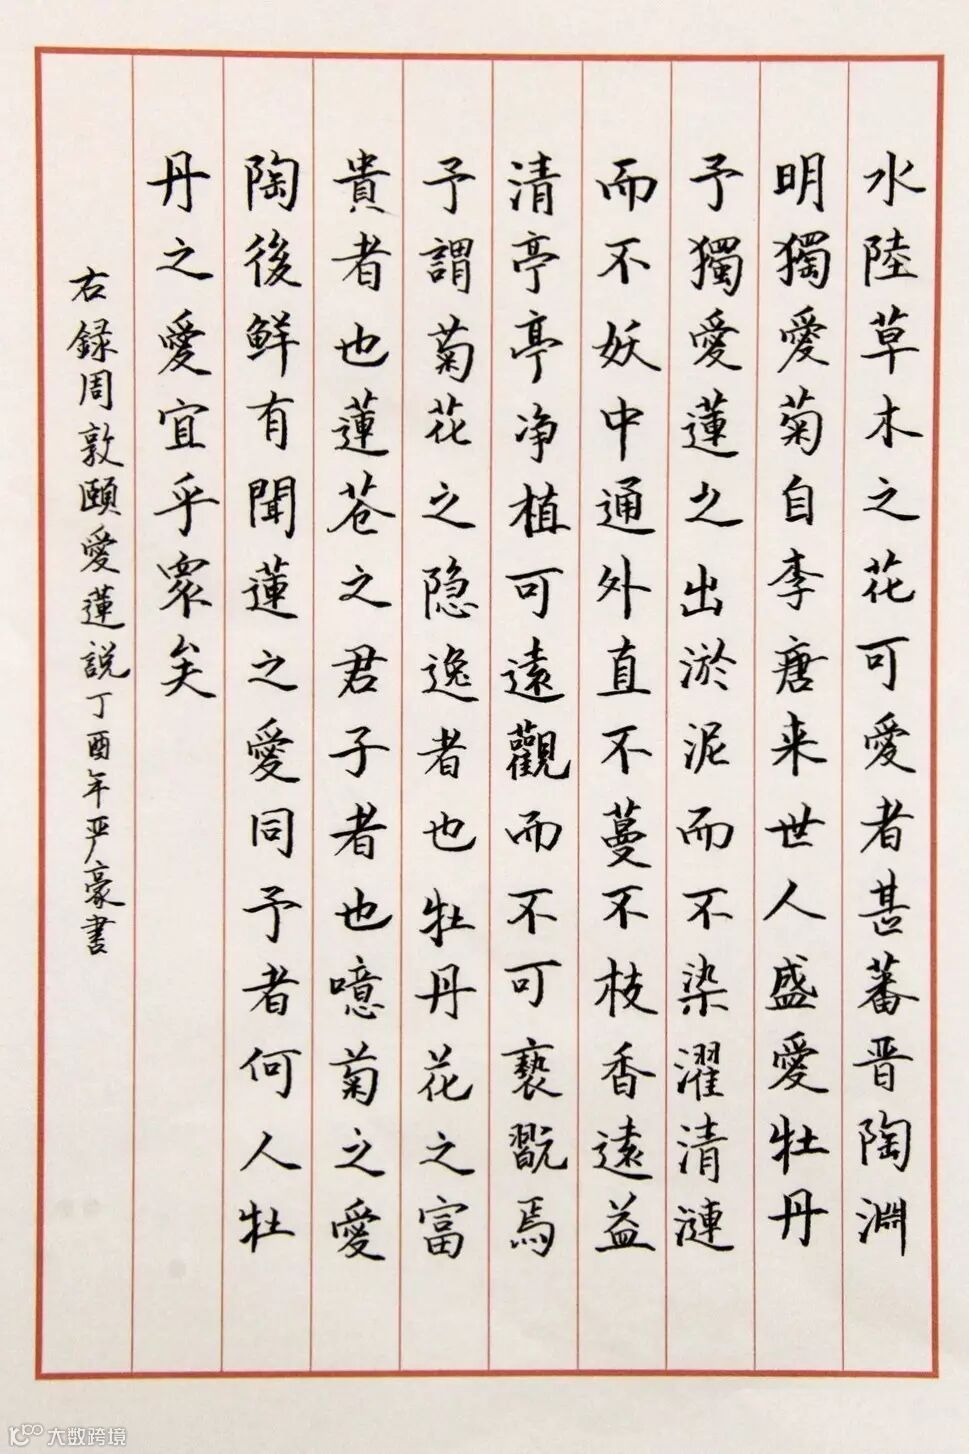 水陸草木之花可愛者甚蕃晋陶淵
明獨愛菊自李唐来世人盛愛牡丹
予獨愛蓮之出淤泥而不染濯清漣
而不妖中通外直不蔓不枝香遠益
清亭亭净植可遠觀而不可褻翫焉
予謂菊花之隐逸者也牡丹花之富
貴者也蓮花之君子者也噫菊之愛
陶後鮮有聞蓮之愛同予者何人牡
丹之愛宜乎衆矣
右録周敦頤愛蓮説丁酉年严豪書
大数跨境